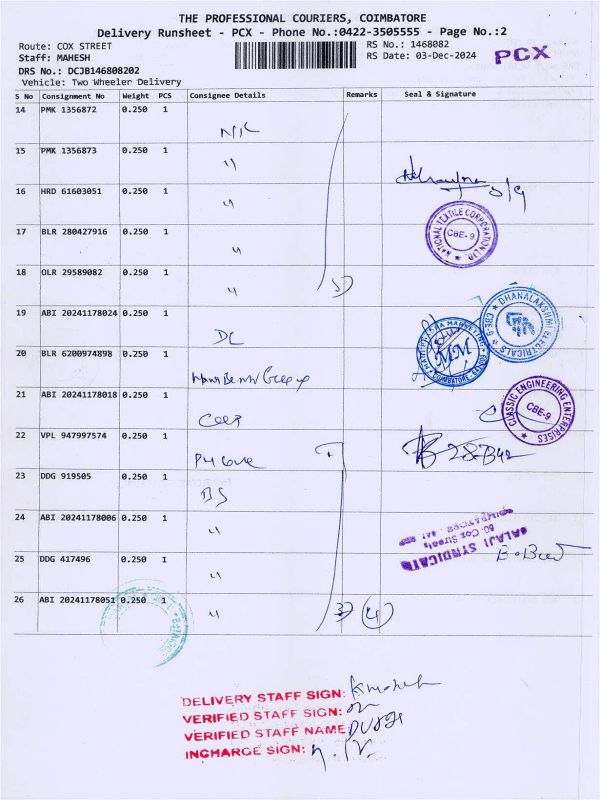 THE PROFESSIONAL COURIERS, COIMBATORE
Delivery Runsheet - PCX - Phone No.:0422-3505555 - Page No.:2
Route: COX STREET
RS No.: 1468082
PCX
Staff: MAHESH
RS Date: 03-Dec-2024
DRS No.: DCJB146808202
Vehicle: Two Wheeler Delivery
S No Consignment No Weight PCS Consignee Details Remarks Seal & Signature
14 PMK 1356872 0.250 1
15 PMK 1356873 0.250 1 "
16 HRD 61603051 0.250 1 "
17 BLR 280427916 0.250 1 "
NATIONAL TEXTILE CORPORATION LTD. CBE-9
18 OLR 29589082 0.250 1 "
19 ABI 20241178024 0.250 1 DC
DHANALAKSHMI ELECTRICALS CBE-9
MM COIMBATORE
20 BLR 6200974898 0.250 1
21 ABI 20241178018 0.250 1
CLASSIC ENGINEERING ENTERPRISES CBE-9
22 VPL 947997574 0.250 1
23 DDG 919505 0.250 1 BS
24 ABI 20241178006 0.250 1 "
BALAJI SYNDICATE
60, Cox Street
25 DDG 417496 0.250 1 "
26 ABI 20241178051 0.250 1 " 4
DELIVERY STAFF SIGN:
VERIFIED STAFF SIGN:
VERIFIED STAFF NAME
INCHARGE SIGN: